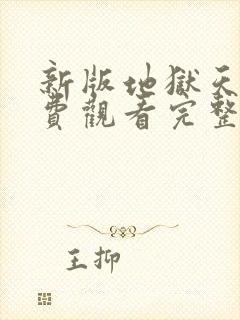 新版地獄天
費觀看完整
王抑